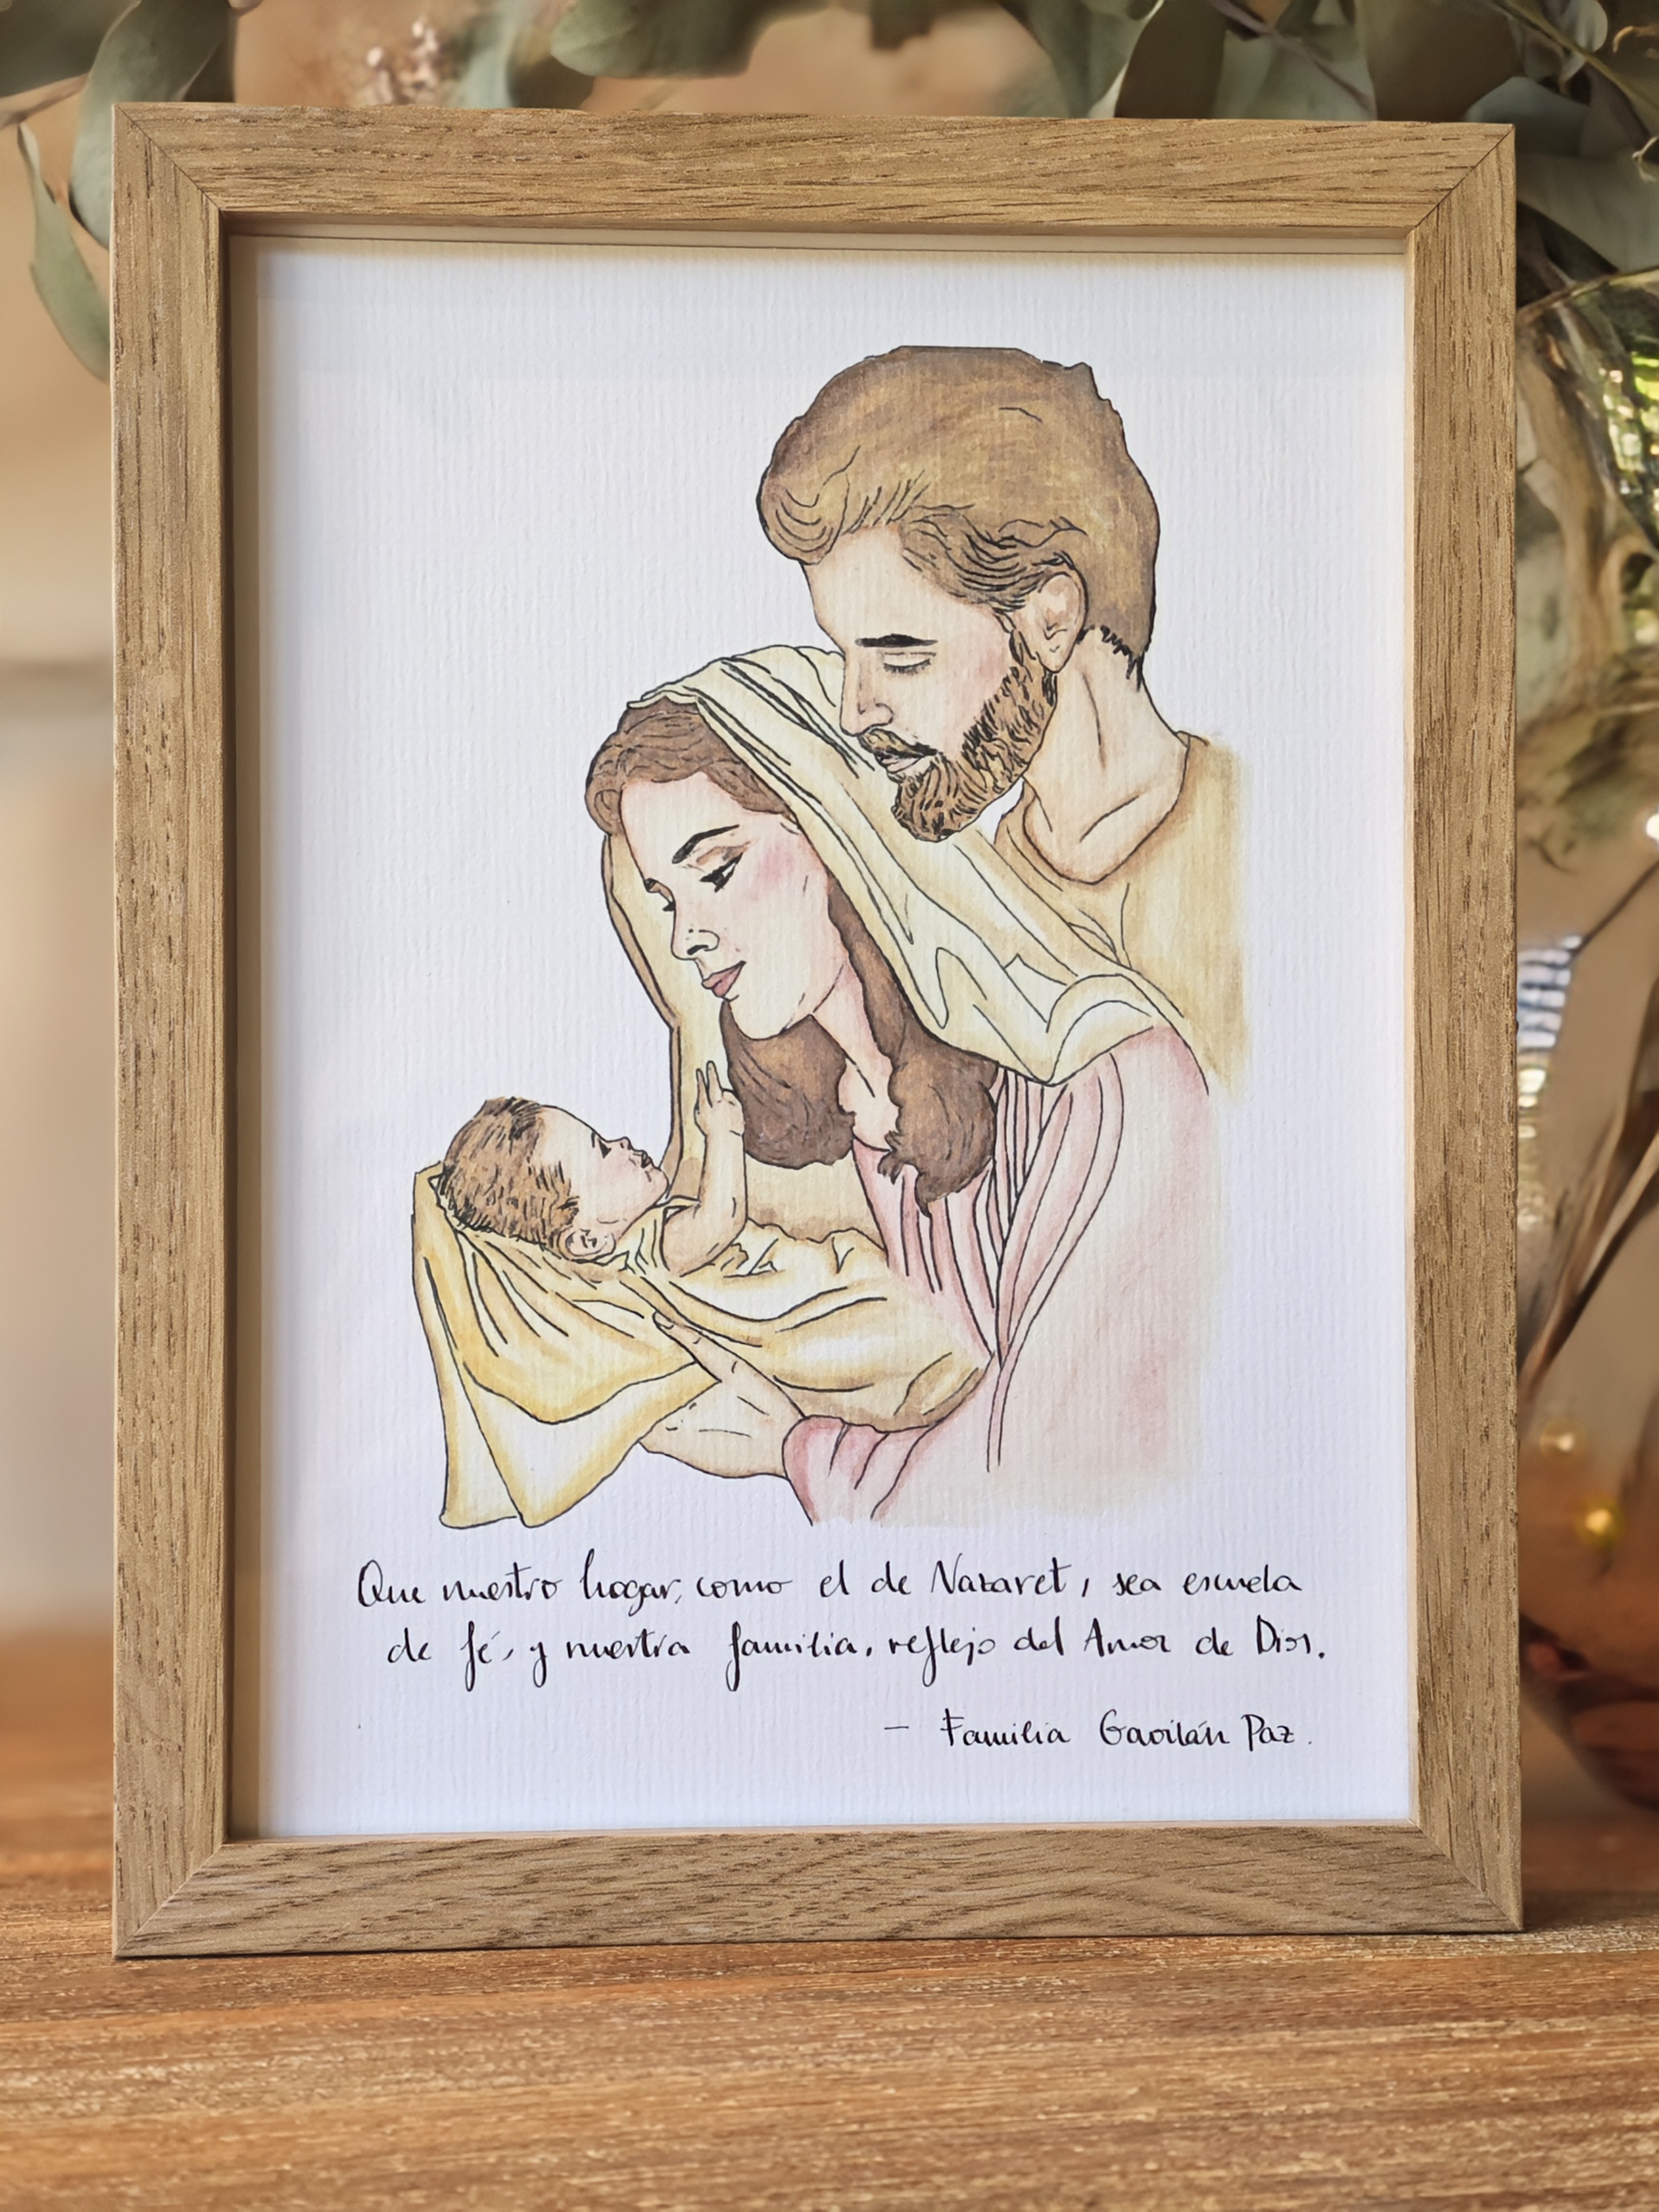 Que nuestro hogar, como el de Nazaret, sea escuela
de fé, y nuestra familia, reflejo del Amor de Dios.
- Familia Gavilán Paz.